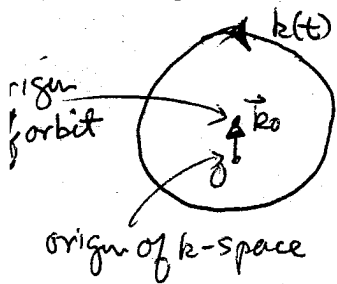 k(t)
rigin
f orbit
k⃗₀
0
origin of k-space